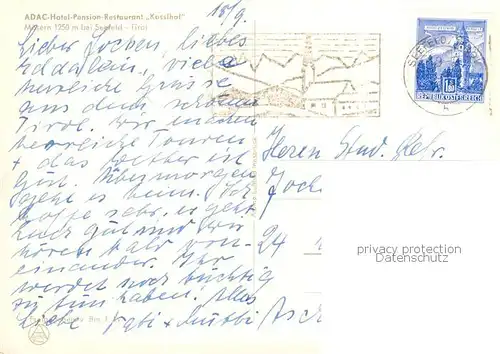 ADAC-Hotel-Pension-Restaurant „Kaسslhof"
Mösern 1250 m bei Seefeld - Tirol
18/9.
Lieber Jochen, liebes
viele
herzliche Grüsse
aus dem schönen
Tirol. Wir machen
herrliche Touren
+ das Wetter ist
gut. Übermorgen
geht es heim. Ich
hoffe sehr, es geht
Euch gut und wir
hören bald von-
einander. Ihr
werdet noch tüchtig
zu tun haben. Alles
Liebe + Mutti
SEEFELD
REPUBLIK ÖSTERREICH
Herrn Stud. Refr.
24
privacy protection
Datenschutz